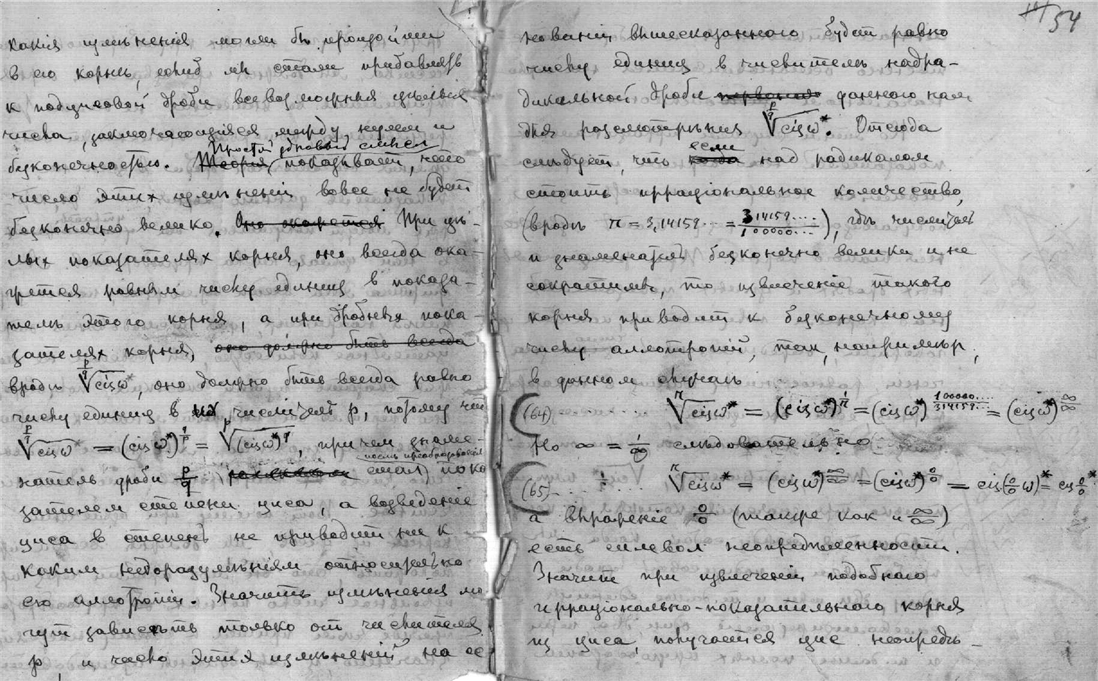 какія измѣненія могли бы произойти
въ его корнѣ, еслиб мы стали прибавлять
к подцисовой дроби всевозможныя цѣлыя
числа, заключающіяся между нулем и
безконечностью. Простой здравый смысл
Теорія показывает, что
число этих измѣненій вовсе не будет
безконечно велико. Оно окажется При цѣ-
лых показателях корня, оно всегда ока-
жется равным числу единиц в показа-
телѣ этого корня, а при дробных пока-
зателях корня, оно должно быть всегда
вродѣ ᵖ⁄ᑫ√cisω*, оно должно быть всегда равно
числу единиц в числителѣ p, потому что
ᵖ⁄ᑫ√cisω* = (cisω*)^{1/(p/q)} = ᵖ√(cisω*)^q, при чем знаме-
послѣ преобразованія
натель дроби p/q стал пока
зателем степени циса, а возведеніе
циса в степень не приводит ни к
каким недоразумѣніям относительно
его аллотропій. Значит измѣненія мо
гут зависѣть только от числителя
p, и число этих измѣненій на ос
54
нованіи вышесказаннаго будет равно
числу единиц в числителѣ надра-
дикальной дроби даннаго нам
для разсмотрѣнія ᵖ⁄ᑫ√cisω*. Отсюда
если
слѣдует, что когда над радикалом
стоит ирраціональное количество,
(вродѣ π = 3,14159... = 314159.../100000...), гдѣ числитель
и знаменатель безконечно велики и не
сократимы, то извлеченіе такого
корня приводит к безконечному
числу аллотропій, так, напримѣр,
в данном случаѣ
(64) ... ᵖ√cisω* = (cisω*)^{1/π} = (cisω*)^{100000.../314159...} = (cisω*)^{∞/∞}
Но ∞ = 1/0 слѣдовательно
(65) ... ᵖ√cisω* = (cisω*)^{∞/∞} = (cisω*)^{0/0} = cis(0/0 ω)* = cis 0/0*
а выраженіе 0/0 (также как и ∞/∞)
есть символ неопредѣленности.
Значит при извлеченіи подобнаго
ирраціонально-показательнаго корня
из циса, получается цис неопредѣ-